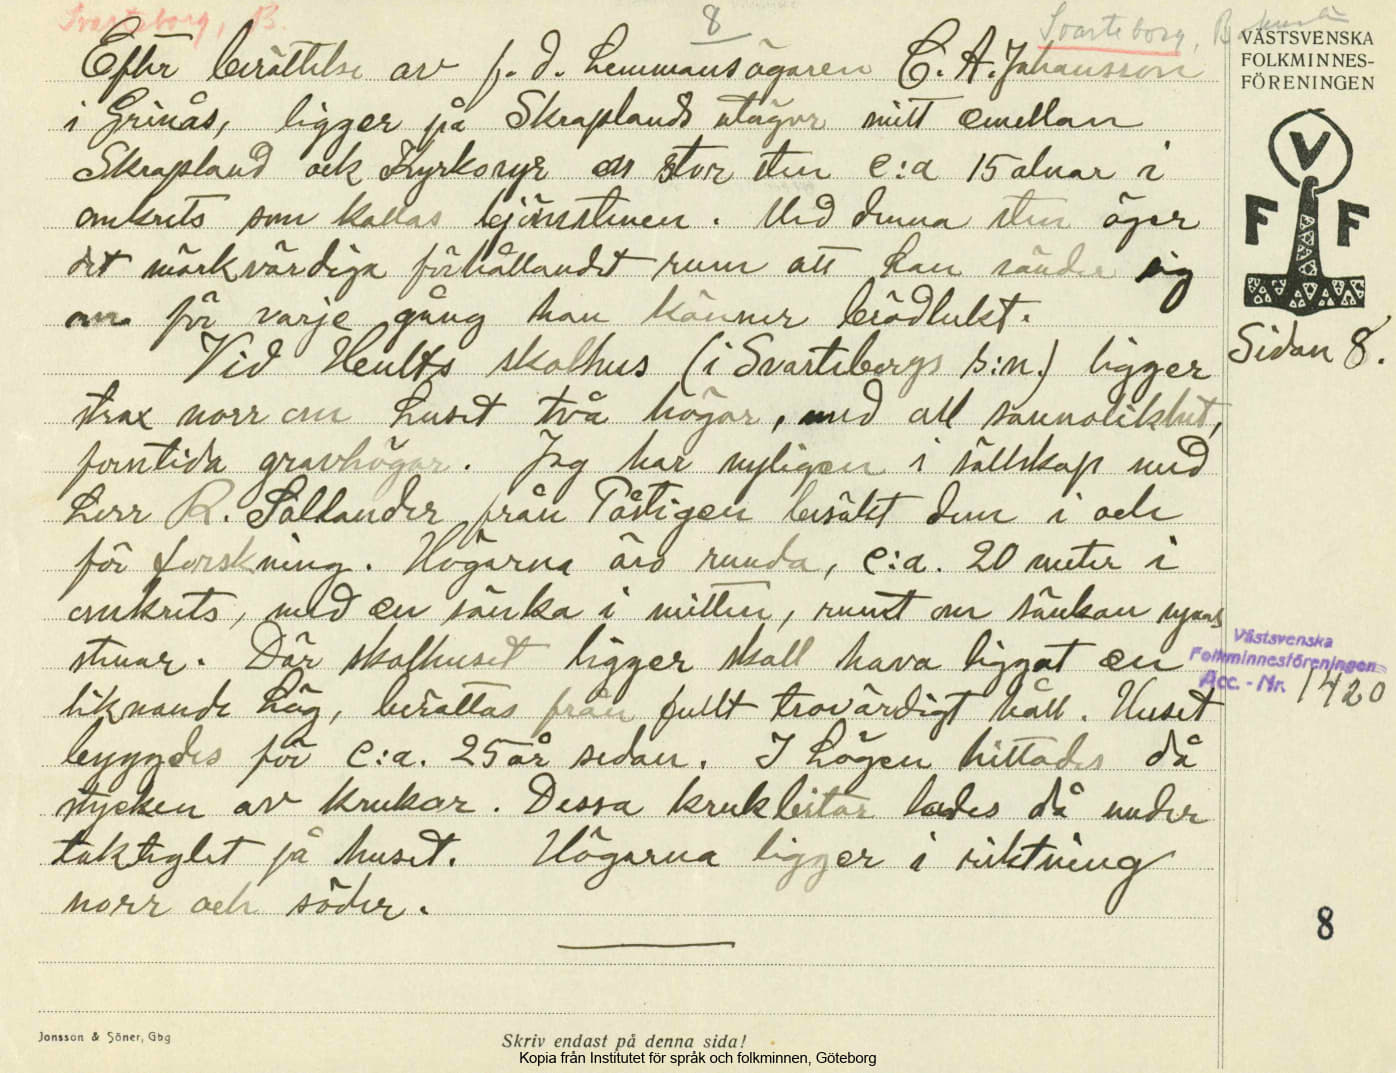 Svarteborg, B.
8
Svarteborg, Bohuslän
Efter berättelse av f. d. hemmansägaren C. A. Johansson
i Grinås, ligger på Skraplands utägor mitt emellan
Skrapland ock Kyrkoryr en stor sten c:a 15 alnar i
omkrets som kallas björnstenen. Med denna sten äger
det märkvärdiga förhållandet rum att han vänder sig
om för varje gång han känner brödlukt.
Vid Hults skolhus (i Svarteborgs s:n.) ligger
strax norr om huset två högar, med all sannolikhet,
forntida gravhögar. Jag har nyligen i sällskap med
herr R. Sallander från Påstigen besökt dem i och
för forskning. Högarna äro runda, c:a. 20 meter i
omkrets, med en sänka i mitten, runt om sänkan synas
stenar. Där skolhuset ligger skall hava liggat en
liknande hög, berättas från fullt trovärdigt håll. Huset
byggdes för c:a. 25 år sedan. I högen hittades då
stycken av krukor. Dessa krukbitar lades då under
takteglet på huset. Högarna ligger i riktning
norr och söder.
VÄSTSVENSKA
FOLKMINNES-
FÖRENINGEN
V
F F
Sidan 8.
Västsvenska
Folkminnesföreningen
Acc. - Nr. 1420
8
Jonsson & Söner, Gbg
Skriv endast på denna sida!
Kopia från Institutet för språk och folkminnen, Göteborg